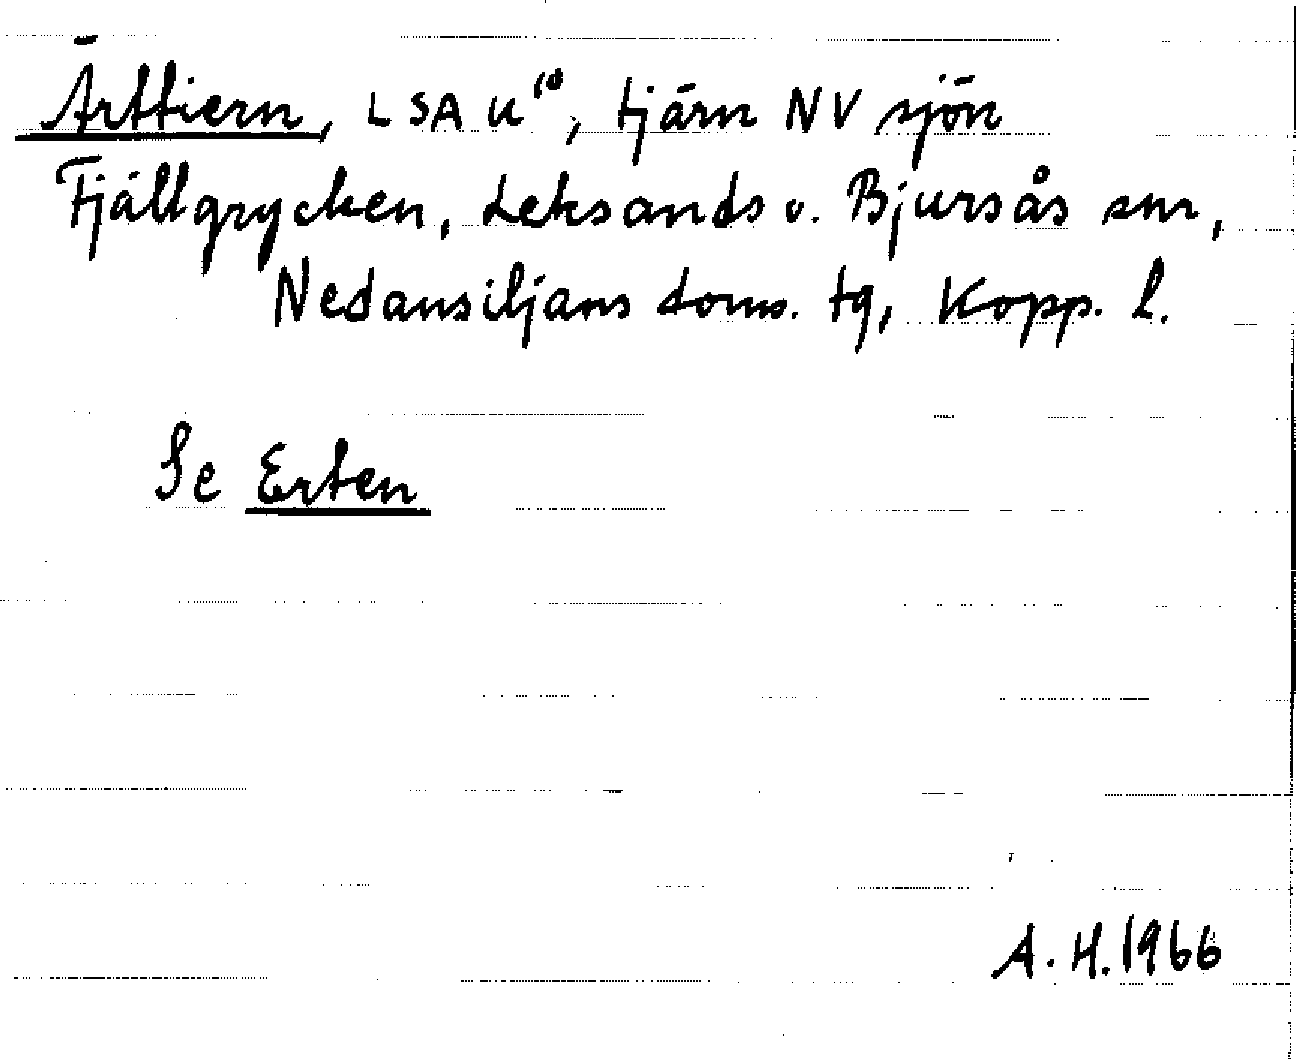 Ärttiern, LSA U¹⁰, tjärn NV sjön
Fjällgrycken, Leksands o. Bjursås snr,
Nedansiljans doms. tg, Kopp. l.
Se Erten
A. H. 1966